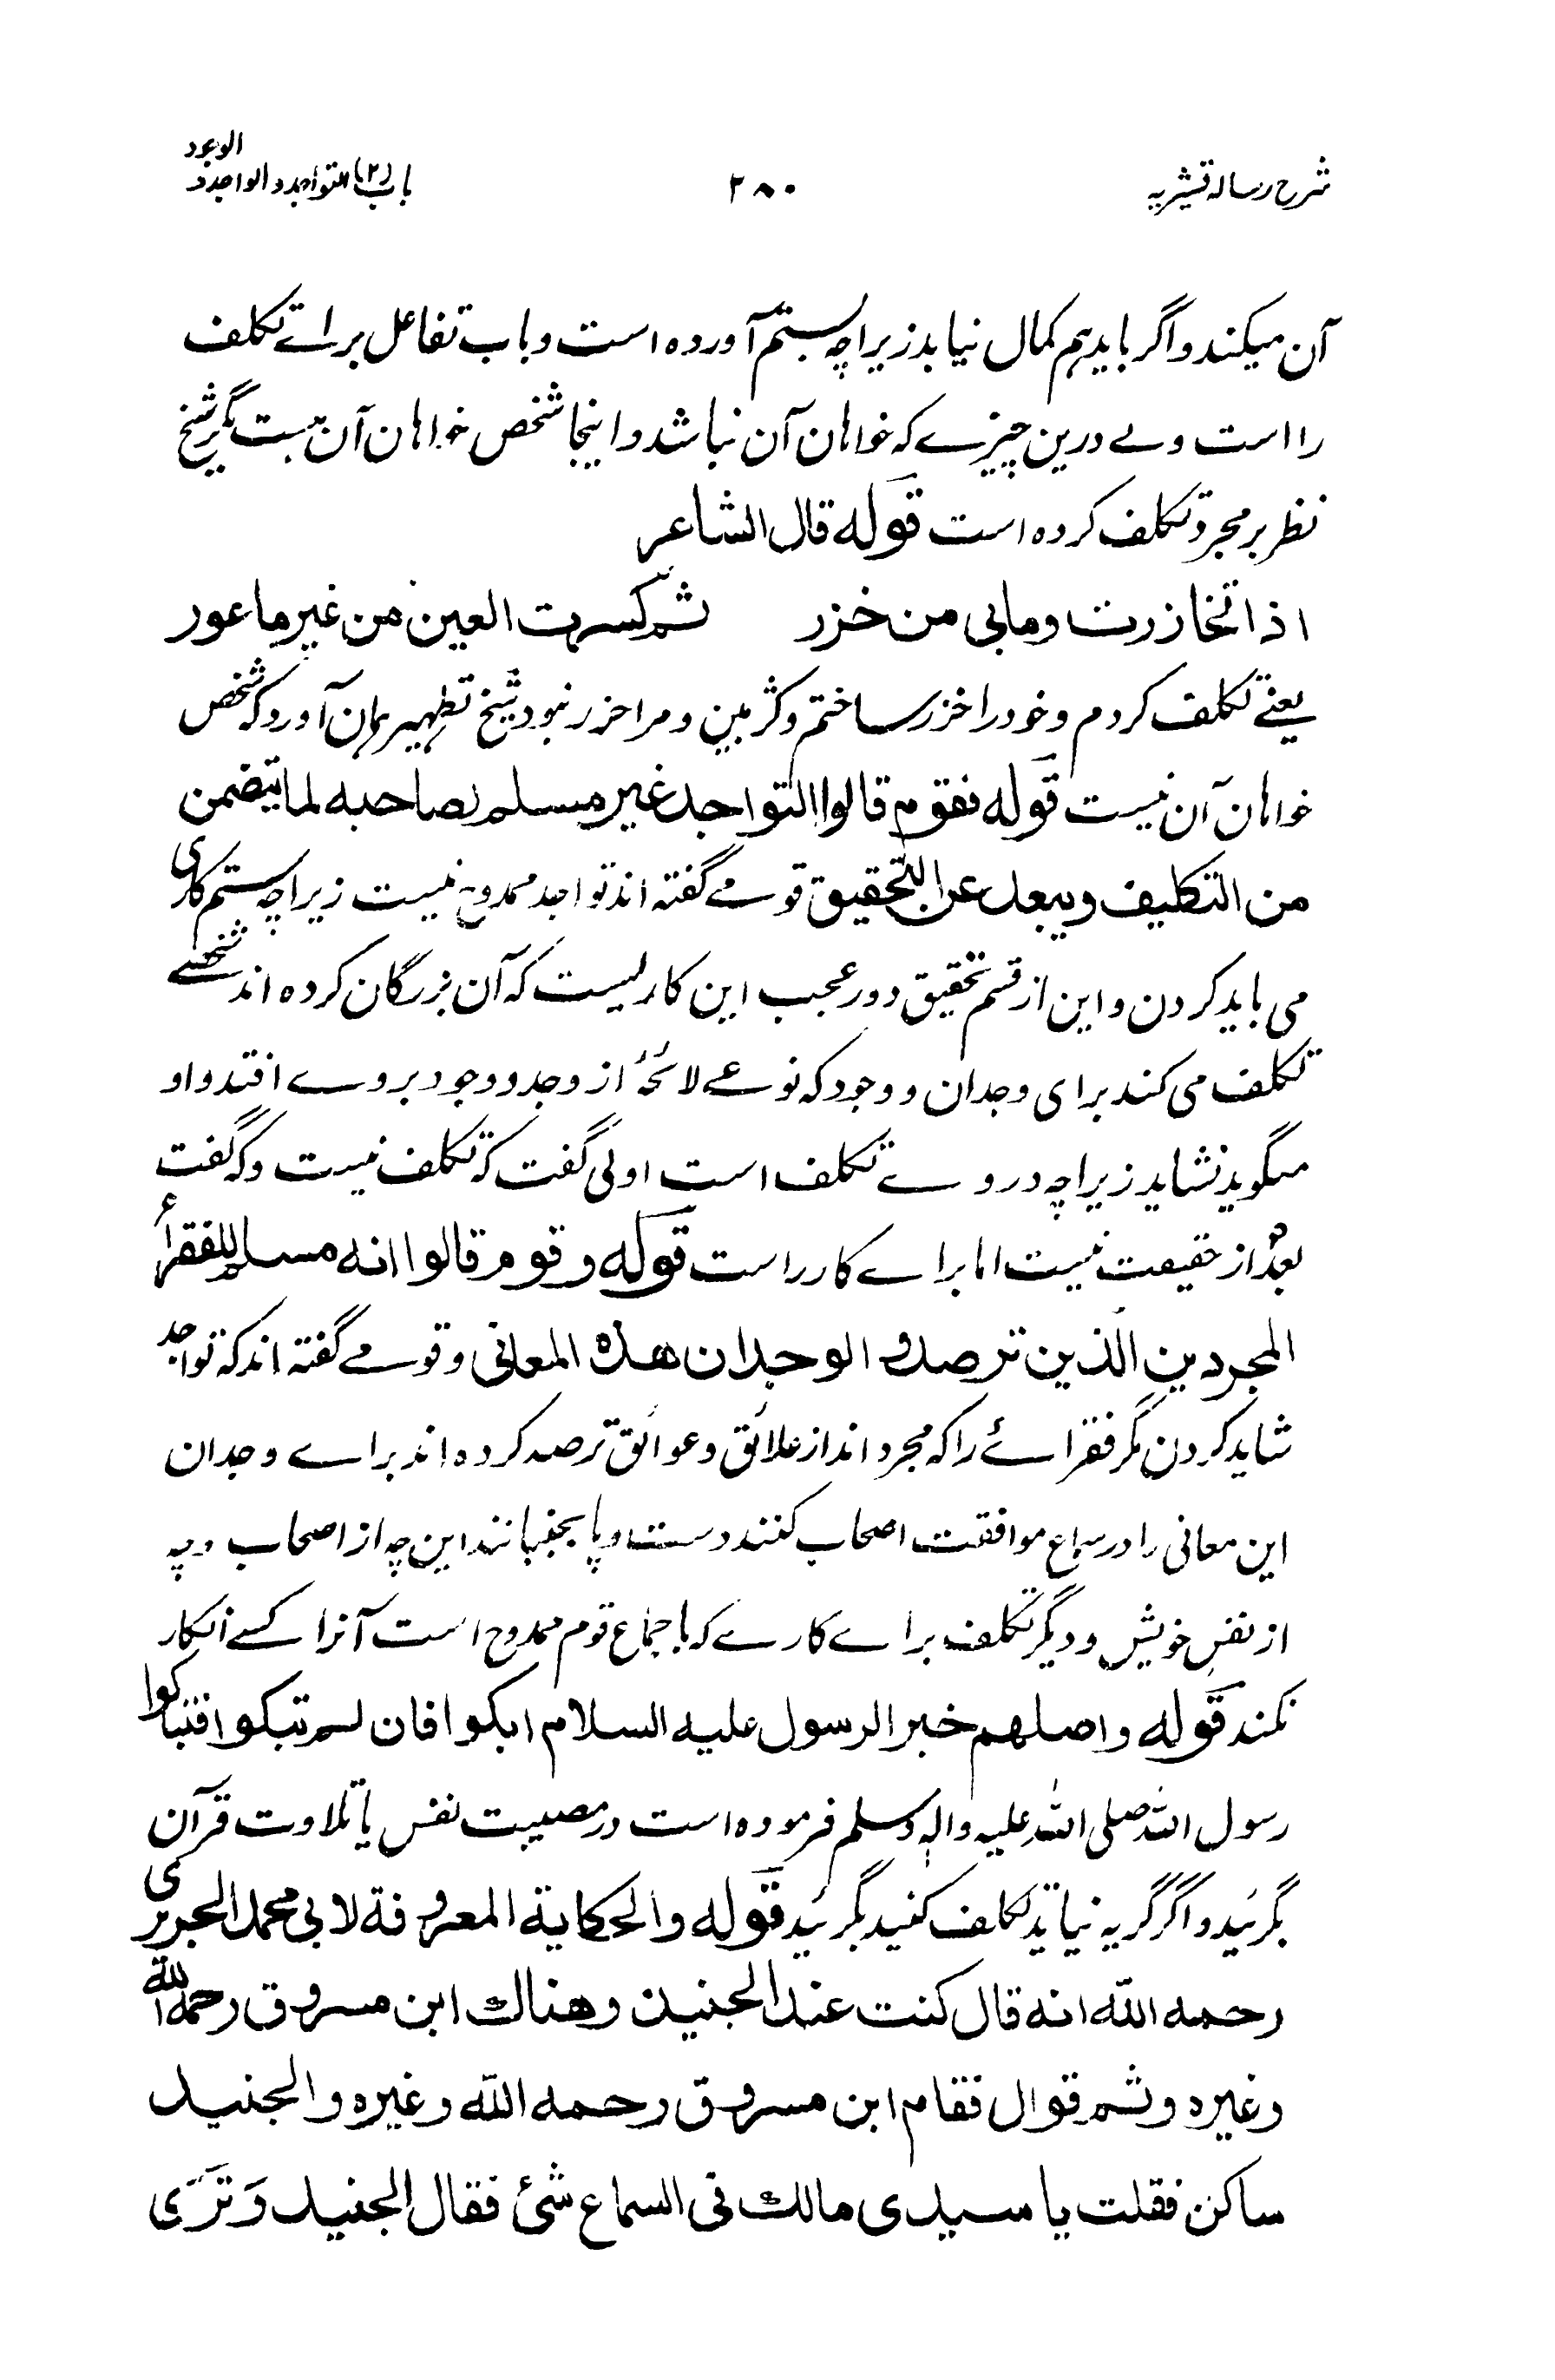 شرح رسالہ قشیریہ ۲۸۰ باب (۲) التواجد والواجد و الوجود
آن میکند و اگر باید ہم کمال نیابد زیراچہ بستم آوردہ است و باب تفاعل براے تکلف
را است ولے درین چیزے کہ خواہان آن نباشد و اینجا شخص خواہان آن ہست مگر شیخ
نظر بر مجرد تکلف کردہ است قولہ قال الشاعر
اذا تخازرت ومابی من خزر ثم کسرت العین من غیر ما عور
یعنے تکلف کردم و خود را خزر ساختم و کژ مبین و مرا خزر نبود شیخ نظیر بمان آورد کہ شخص
خواہان آن نیست قولہ فقوم قالوا التواجد غیر مسلم لصاحبہ لما یتضمن
من التکلیف ویبعد عن التحقیق قومے گفتہ اند تواجد ممدوح نیست زیراچہ ستم کاری
می باید کردن و این از قسم تحقیق دور عجب این کاریست کہ آن بزرگان کردہ اند شخصے
تکلف می کند برای وجدان و وجود کہ نوعے لائحۂ از وجد و وجود بروے افتد و او
میگوید نشاید زیراچہ دروے تکلف است اولی گفت کہ تکلف نیست و گہ گفت
بعد از حقیقت نیست اما براے کار راست قولہ وقوم قالوا انہ مسلم للفقراء
المجردین الذین ترصدوا لوجدان ھذہ المعانی و قومے گفتہ اند کہ تواجد
شاید کردن مگر فقراے را کہ مجرد اند از علائق و عوائق ترصد کردہ اند براے وجدان
این معانی را در سماع موافقت اصحاب کنند دست و پا بجنبانند این چہ از اصحاب و چہ
از نفس خویش و دیگر تکلف براے کارے کہ باجماع قوم ممدوح است آنرا کسے انکار
نکند قولہ واصلھم خبر الرسول علیہ السلام ابکوا فان لم تبکوا فتباکوا
رسول اللہ صلی اللہ علیہ والہ وسلم فرمودہ است در مصیبت نفس یا تلاوت قرآن
بگرئید و اگر گریہ نیاید تکلف کنید بگرئید قولہ والحکایة المعروفة لابی محمد الجریری
رحمہ اللہ انہ قال کنت عند الجنید وھناك ابن مسروق رحمہ اللہ
وغیرہ وثم قوال فقام ابن مسروق رحمہ اللہ وغیرہ والجنید
ساکن فقلت یا سیدی مالك فی السماع شئ فقال الجنید وَتَرَی